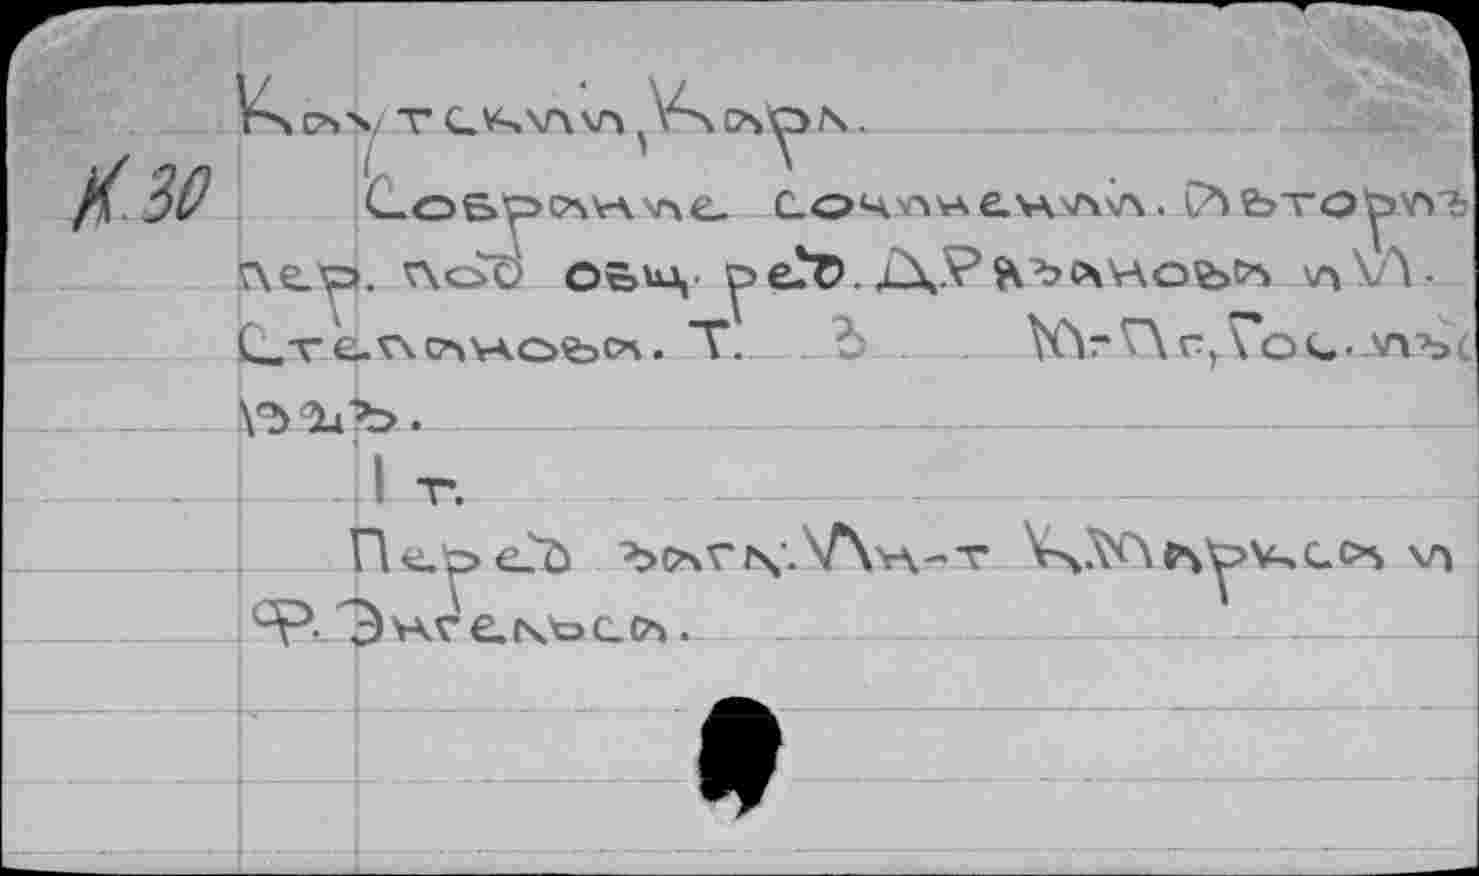 Каутский, Карл.
К 30
Собрание сочинений. Авториз.
пер. под общ. ред. Д. Рязанова и И.
Степанова. Т. 3 М.-Пг., Гос. из
1923.
1 т.
Перед загл.: Ин-т К. Маркса и
Ф. Энгельса.